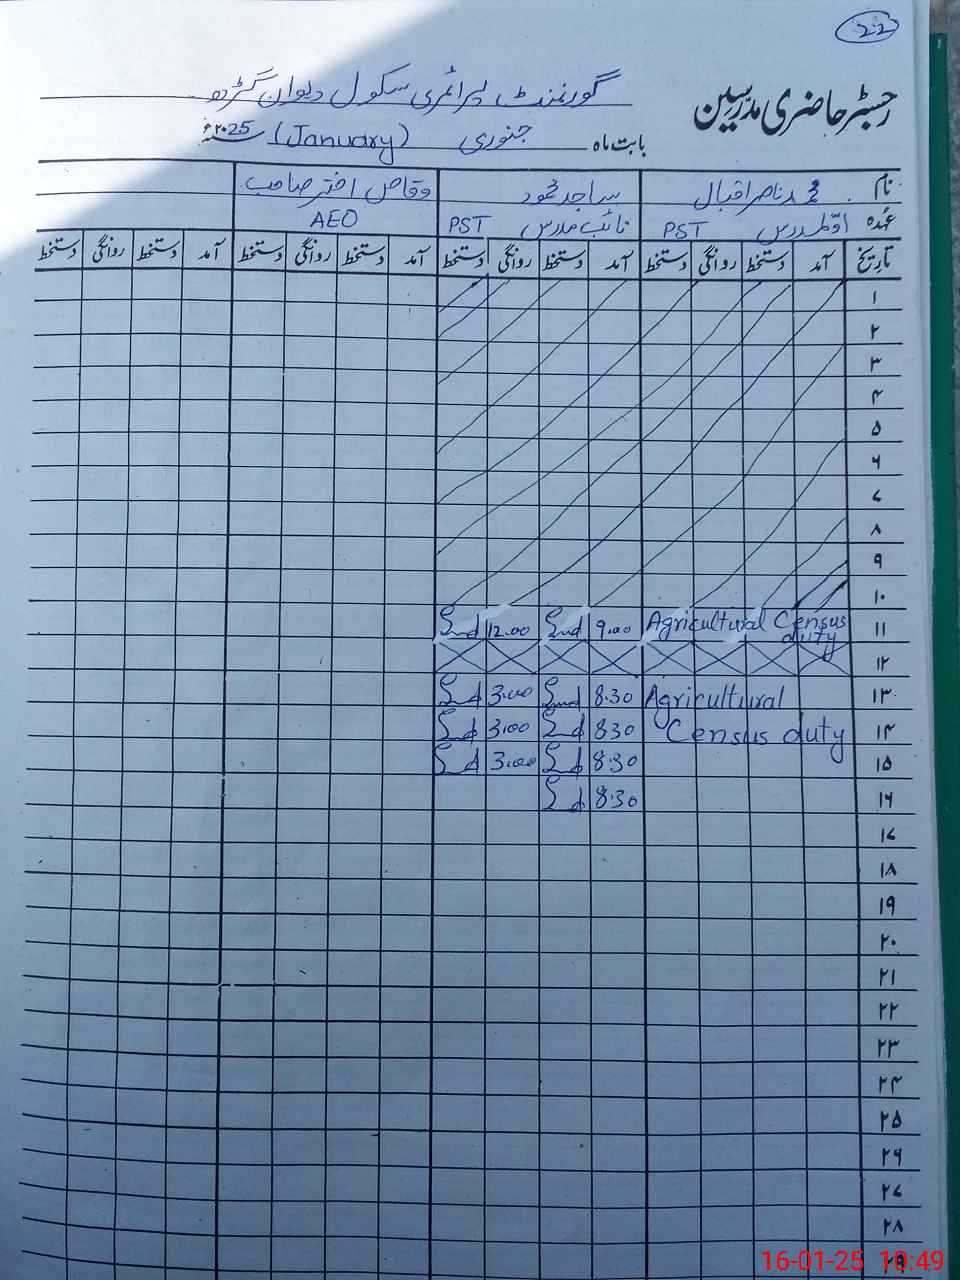 22
رجسٹر حاضری مدرسین
گورنمنٹ پرائمری سکول دیوان گڑھ
بابت ماہ جنوری (January) سنہ ۲۰25ء
نام محمد ناصر اقبال ساجد محمود وقاص اختر صاحب
عہدہ اوّل مدرس PST نائب مدرس PST AEO
تاریخ آمد دستخط روانگی دستخط آمد دستخط روانگی دستخط آمد دستخط روانگی دستخط آمد دستخط روانگی دستخط
۱
۲
۳
۴
۵
۶
۷
۸
9
۱۰
۱۱ Agricultural Census duty 9.00 12.00
۱۲
۱۳ Agricultural 8.30 3.00
۱۴ Census duty 830 3.00
۱۵ 8.30 3.00
۱۶ 8.30
۱۷
۱۸
۱9
۲۰
۲۱
۲۲
۲۳
۲۴
۲۵
۲۶
۲۷
۲۸
۲9
16-01-25 10:49